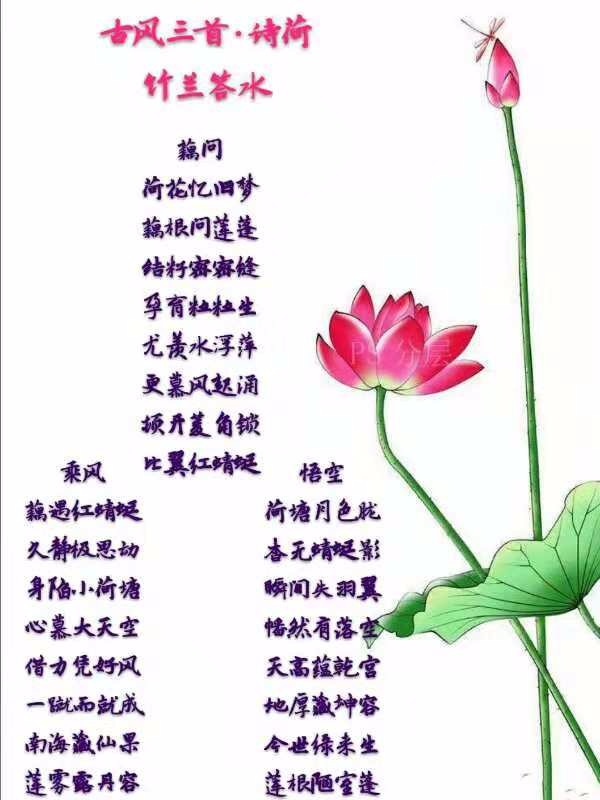 古风三首·诗荷
竹兰答水
藕问
荷花忆旧梦
藕根问莲蓬
结籽密密缝
孕育粒粒生
尤羡水浮萍
更慕风起涌
顷开菱角锁
比翼红蜻蜓
乘风
藕遇红蜻蜓
久静极思动
身陷小荷塘
心慕大天空
借力凭好风
一蹴而就成
南海藏仙果
莲雾露丹容
悟空
荷塘月色胧
杳无蜻蜓影
瞬间失羽翼
幡然有落空
天高蕴乾宫
地厚藏坤容
今世缘来生
莲根陋室蓬
PS 分层